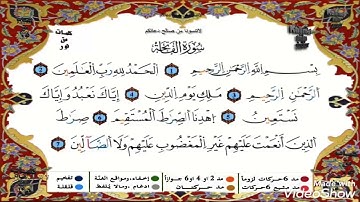 لاتنسونا من صالح دعائكم
كلمات
من
نور
سُورَةُ الْفَاتِحَةِ
بِسْمِ اللَّهِ الرَّحْمَٰنِ الرَّحِيمِ ١ الْحَمْدُ لِلَّهِ رَبِّ الْعَالَمِينَ ٢
الرَّحْمَٰنِ الرَّحِيمِ ٣ مَالِكِ يَوْمِ الدِّينِ ٤ إِيَّاكَ نَعْبُدُ وَإِيَّاكَ
نَسْتَعِينُ ٥ اهْدِنَا الصِّرَاطَ الْمُسْتَقِيمَ ٦ صِرَاطَ
الَّذِينَ أَنْعَمْتَ عَلَيْهِمْ غَيْرِ الْمَغْضُوبِ عَلَيْهِمْ وَلَا الضَّالِّينَ ٧
مد ٦ حركات لزوماً مد ٢ او ٤ او ٦ جوازاً إخفاء، ومواقع الغنّة تفخيم
مد مشبع ٦ حركات مد حركتان إدغام، ومالا يُلفظ قلقلة
Made with KINEMASTER